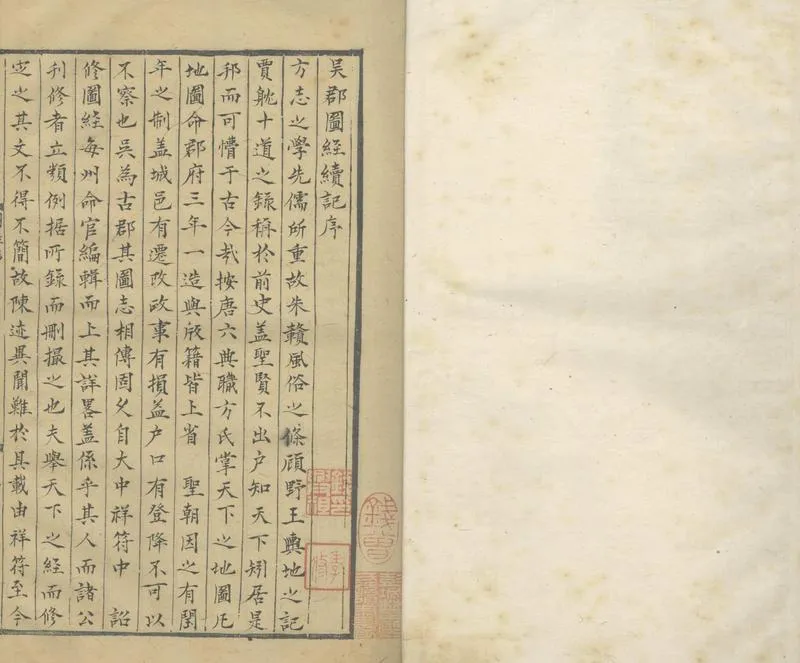 吳郡圖經續記序
方志之學先儒所重故朱贛風俗之條顧野王輿地之記
賈躭十道之錄稱於前史蓋聖賢不出户知天下矧居是
邦而可懵于古今㢤按唐六典職方氏掌天下之地圖凡
地圖命郡府三年一造與版籍皆上省 聖朝因之有閏
年之制盖城邑有遷改政事有損益户口有登降不可以
不察也吳為古郡其圖志相傳固久自大中祥符中 詔
修圖經每州命官編輯而上其詳畧盖係乎其人而諸公
刋修者立類例據所錄而刪撮之也夫舉天下之經而修
定之其文不得不簡故陳迹異聞難於具載由祥符至今
錢曾